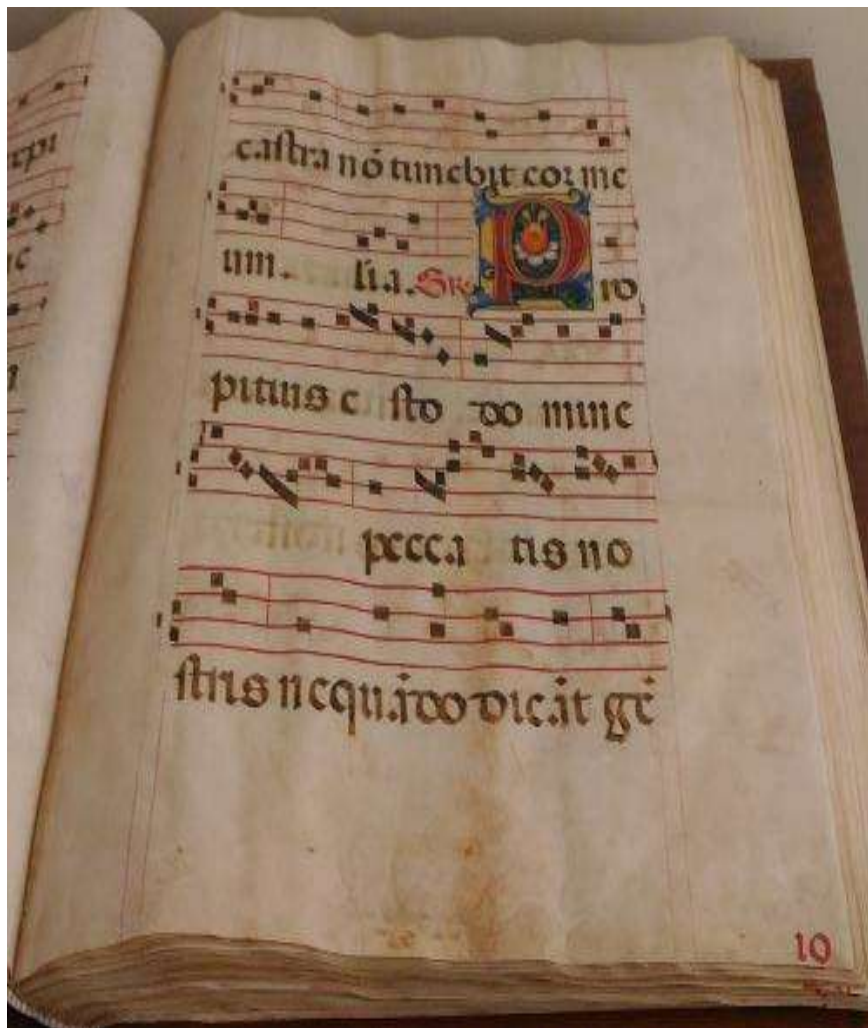 castra nō timebit cor me
um. lia. Gr. Pro
pitius e sto do mine
pecca tis no
stris nequādo dicāt gē
10